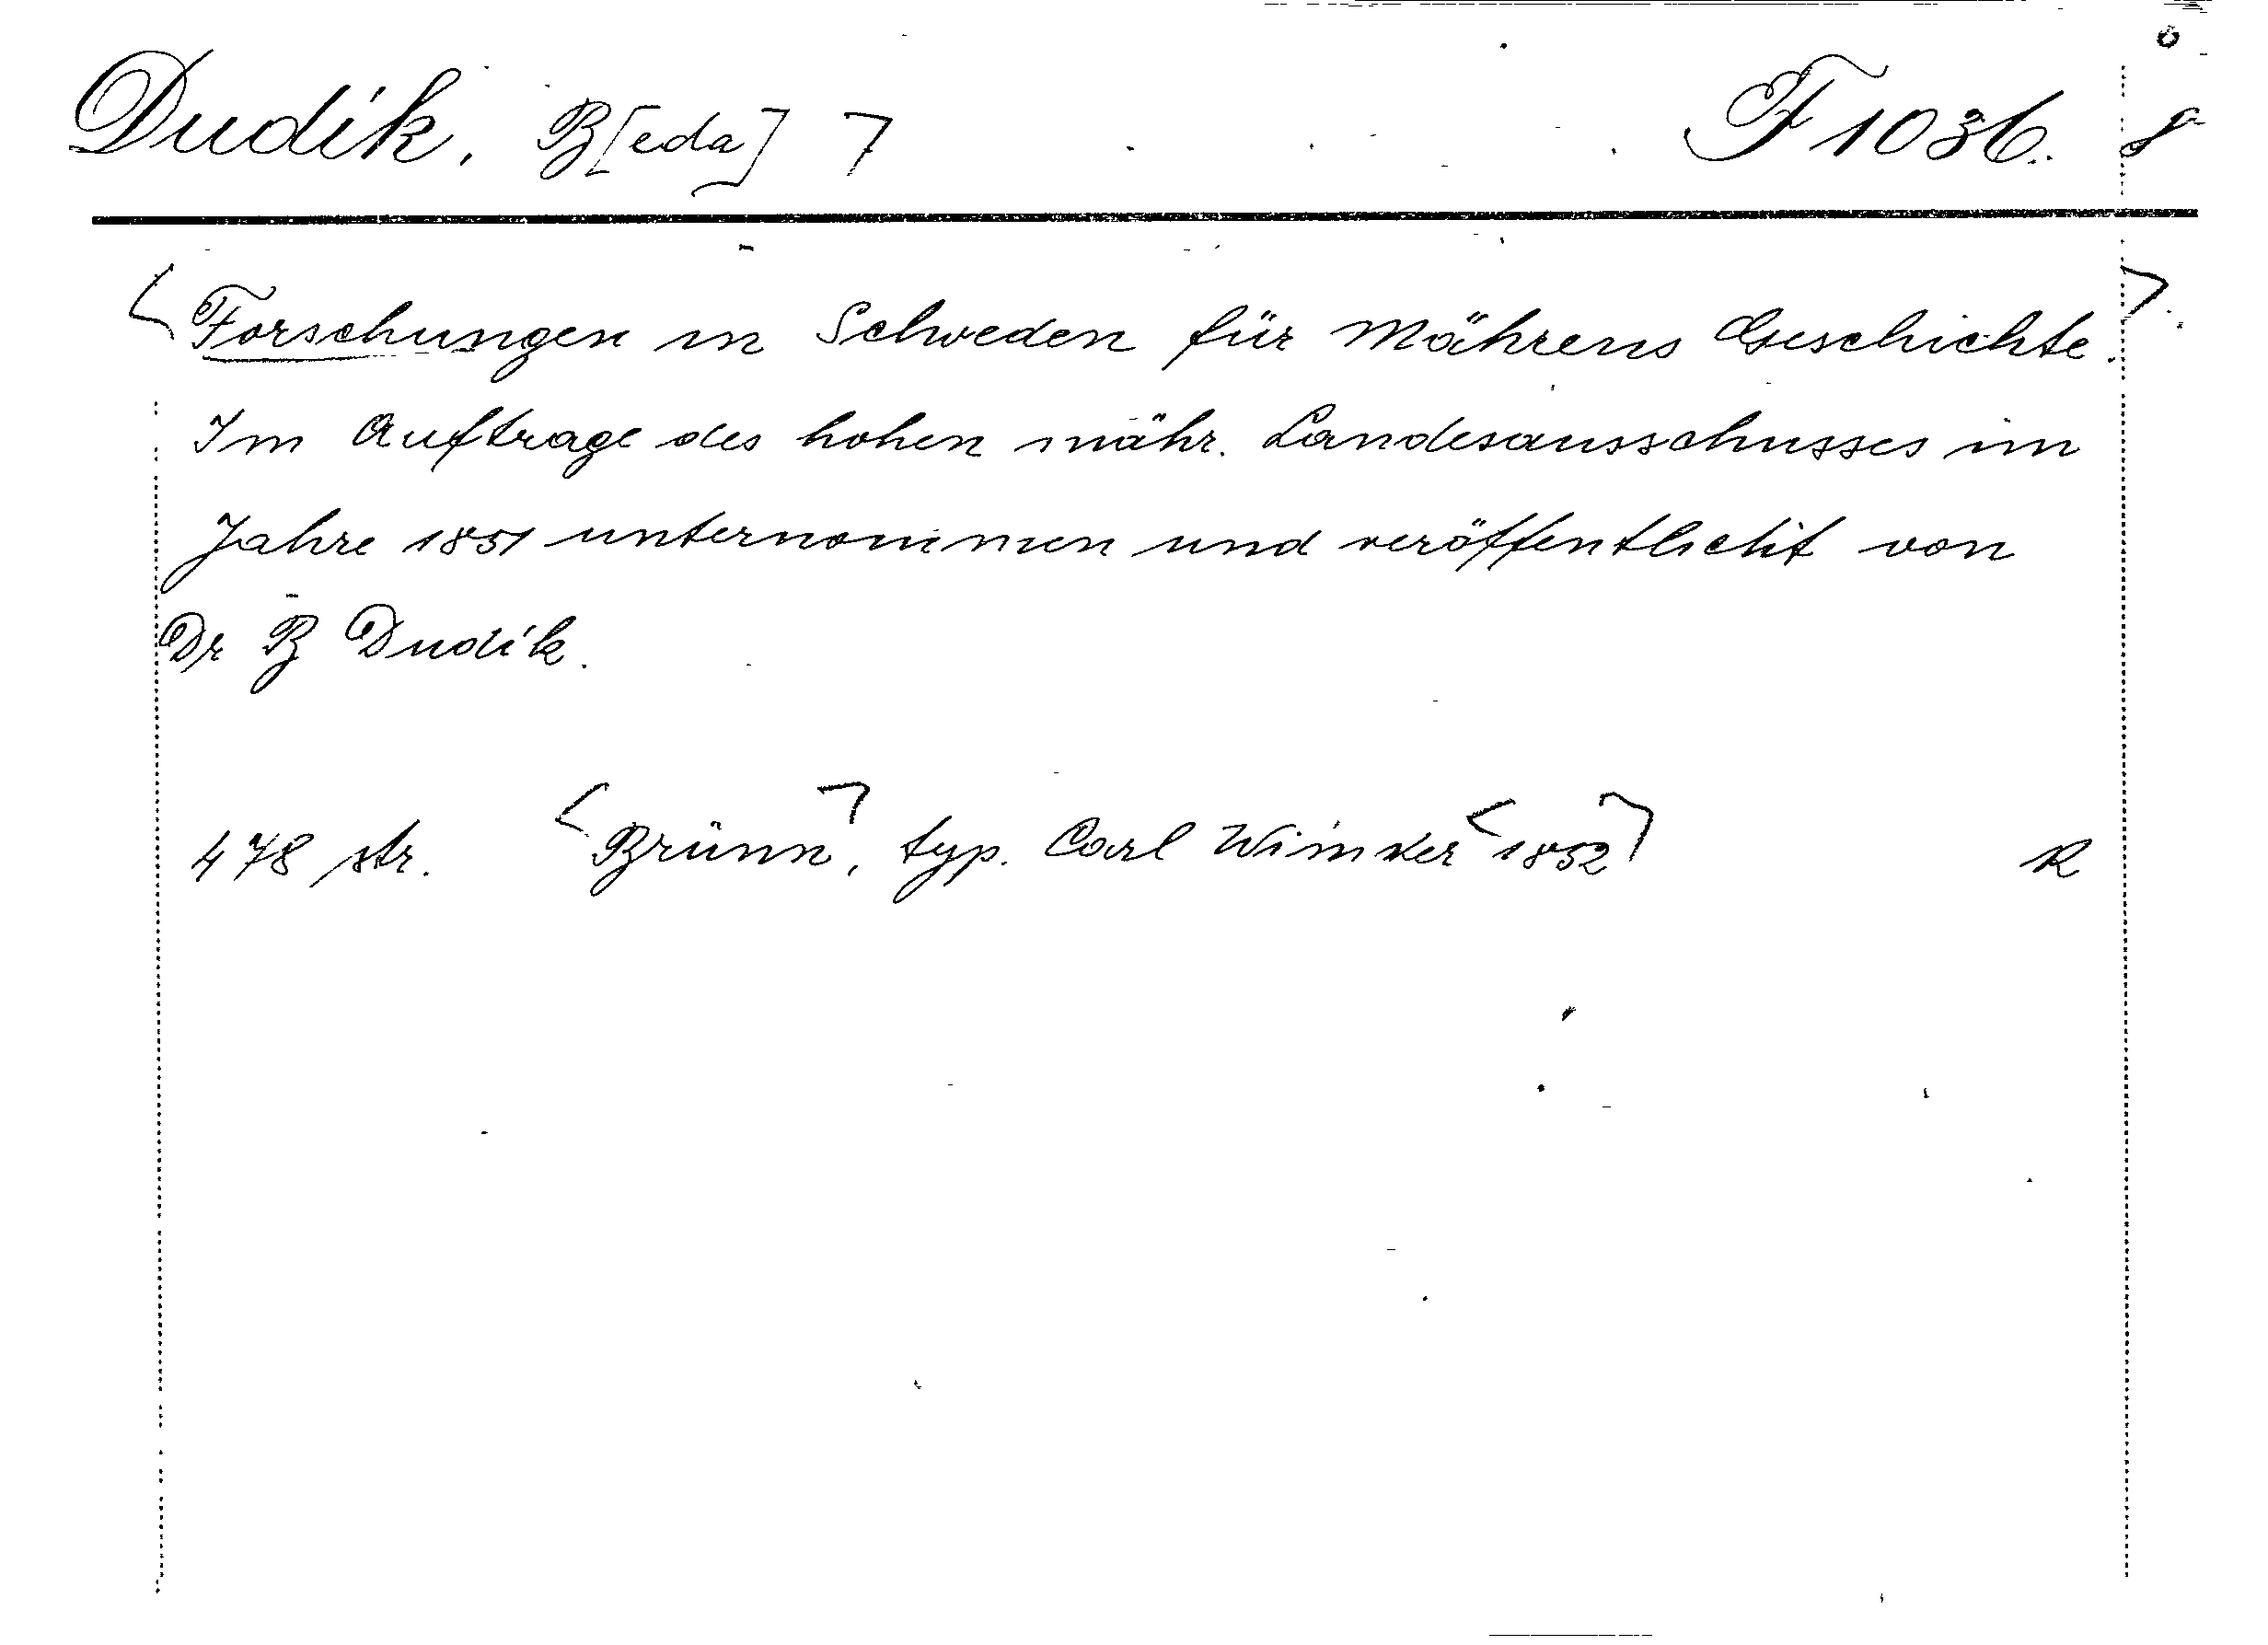 Dudík, B[eda] F 1036.
Forschungen in Schweden für Mährens Geschichte.
Im Auftrage des hohen mähr. Landesausschusses im
Jahre 1851 unternommen und veröffentlicht von
Dr B Dudík.
478 str. Brünn, typ. Carl Winiker 1852 R